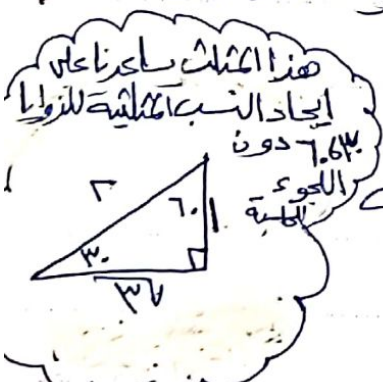 هذا المثلث يساعدنا على
إيجاد النسب المثلثية للزوايا
٣٠، ٦٠ دون
اللجوء
للحاسبة
٢
٦٠
١
٣٠
√٣